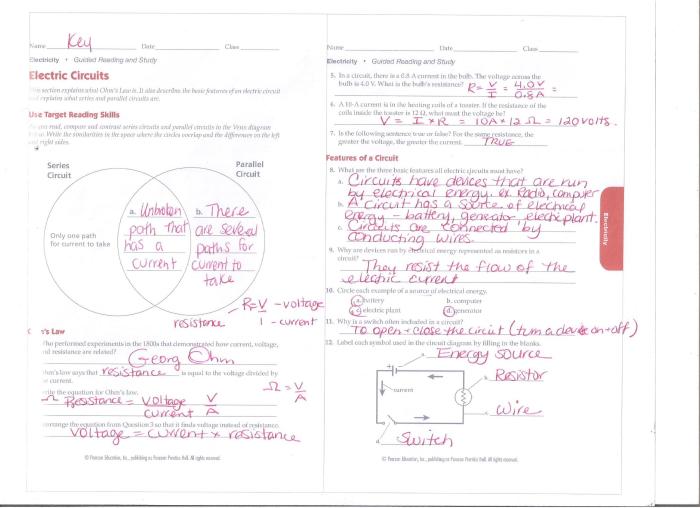 Name Key Date Class
Electricity • Guided Reading and Study
Electric Circuits
This section explains what Ohm's Law is. It also describes the basic features of an electric circuit
and explains what series and parallel circuits are.
Use Target Reading Skills
you read, compare and contrast series circuits and parallel circuits in the Venn diagram
Write the similarities in the space where the circles overlap and the differences on the left
and right sides.
Series
Circuit
Parallel
Circuit
Only one path
for current to take
a. Unbroken
path that
has a
current
b. There
are several
paths for
current to
take
R=V/I - voltage
I - current
resistance
's Law
Who performed experiments in the 1800s that demonstrated how current, voltage,
and resistance are related?
Georg Ohm
Ohm's law says that resistance is equal to the voltage divided by
current.
Ω = V/A
Write the equation for Ohm's law.
Ω Resistance = voltage/current V/A
Rearrange the equation from Question 3 so that it finds voltage instead of resistance.
voltage = current × resistance
© Pearson Education, Inc., publishing as Pearson Prentice Hall. All rights reserved.
Name Date Class
Electricity • Guided Reading and Study
5. In a circuit, there is a 0.8 A current in the bulb. The voltage across the
bulb is 4.0 V. What is the bulb's resistance? R = V/I = 4.0V/0.8A =
6. A 10-A current is in the heating coils of a toaster. If the resistance of the
coils inside the toaster is 12 Ω, what must the voltage be?
V = I × R = 10A × 12 Ω = 120 volts.
7. Is the following sentence true or false? For the same resistance, the
greater the voltage, the greater the current. TRUE
Features of a Circuit
8. What are the three basic features all electric circuits must have?
a. Circuits have devices that are run
by electrical energy. ex. Radio, computer
b. A circuit has a source of electrical
energy - battery, generator, electric plant.
c. Circuits are connected by
conducting wires.
9. Why are devices run by electrical energy represented as resistors in a
circuit?
They resist the flow of the
electric current
10. Circle each example of a source of electrical energy.
a. battery b. computer
c. electric plant d. generator
11. Why is a switch often included in a circuit?
To open + close the circuit (turn a device on + off)
12. Label each symbol used in the circuit diagram by filling in the blanks.
a. Energy source
b. Resistor
current
c. wire
d. Switch
© Pearson Education, Inc., publishing as Pearson Prentice Hall. All rights reserved.
Electricity